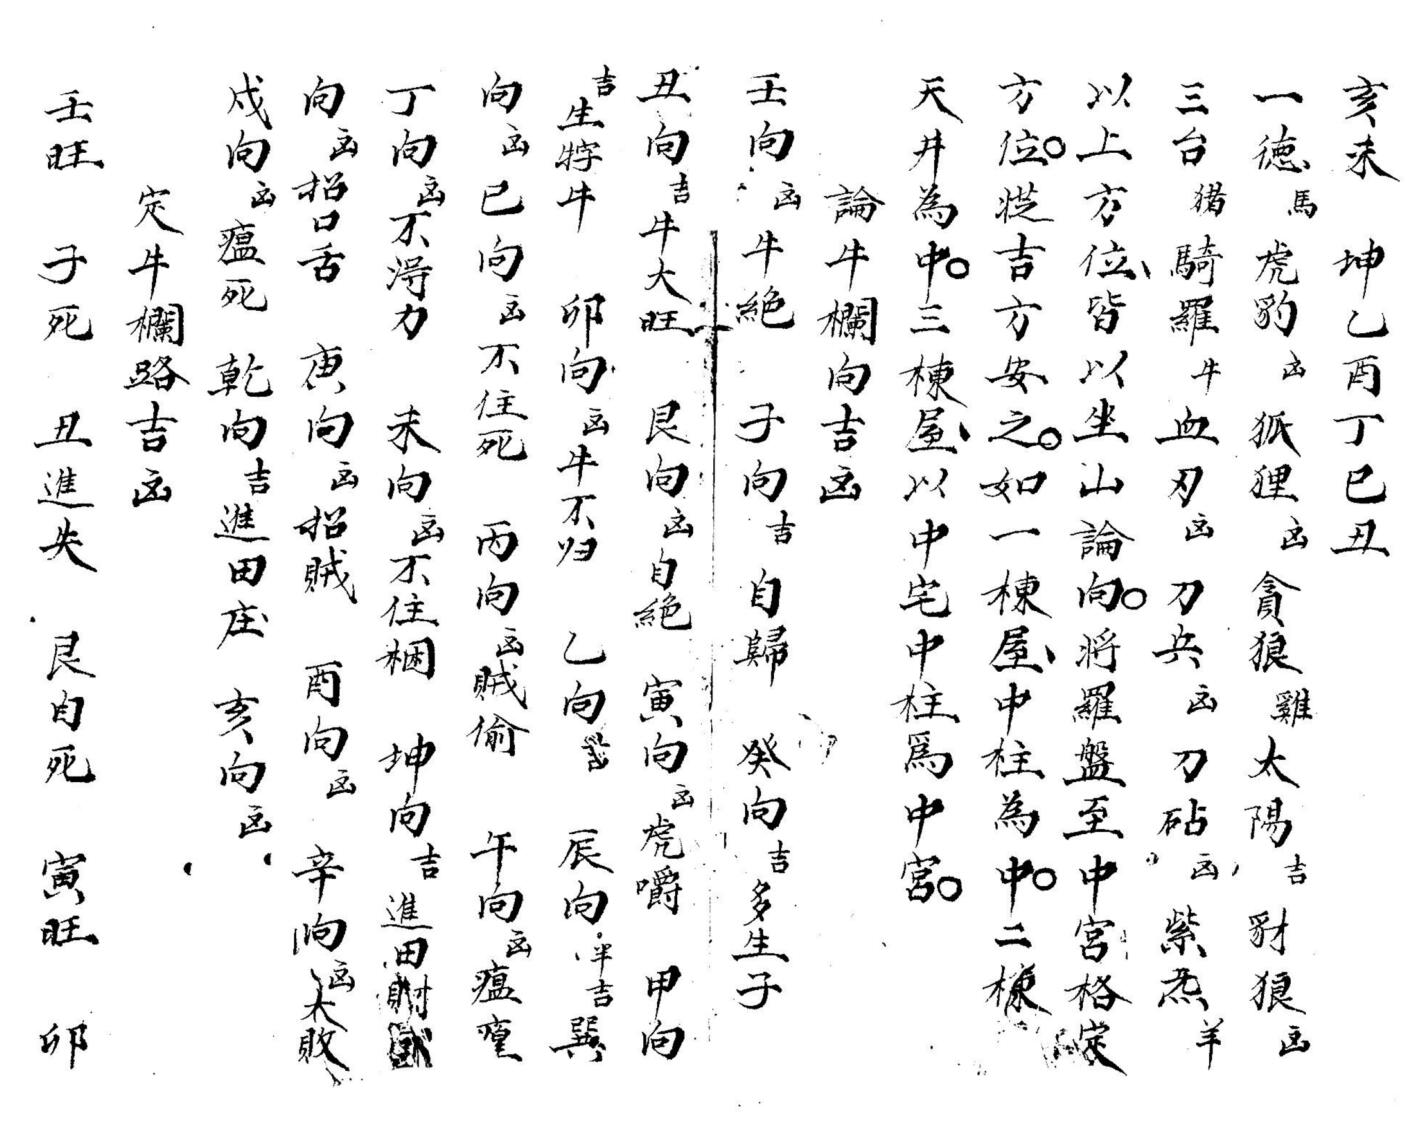 亥未　坤乙酉丁巳丑
一德馬虎豹凶狐狸凶貪狼雞太陽吉豺狼凶
三台猪騎羅牛血刃凶刀兵凶刀砧凶紫炁羊
以上方位皆以坐山論向將羅盤至中宮格定
方位從吉方安之如一棟屋中柱為中二棟
天井為中三棟屋以中宅中柱爲中宮
論牛欄向吉凶
壬向凶牛絕　子向吉自歸　癸向吉多生子
丑向吉牛大旺　艮向凶自絕　寅向凶虎嚼　甲向
吉生牸牛　卯向凶牛不归　乙向　辰向半吉巽
向凶巳向凶不住死　丙向凶賊偷　午向凶瘟瘟
丁向凶不得力　未向凶不住梱　坤向吉進田財
向凶招口舌　庚向凶招賊　酉向凶　辛向凶大敗
戍向凶瘟死　乾向吉進田庄　亥向凶
定牛欄路吉凶
壬旺　子死　丑進失　艮自死　寅旺　卯